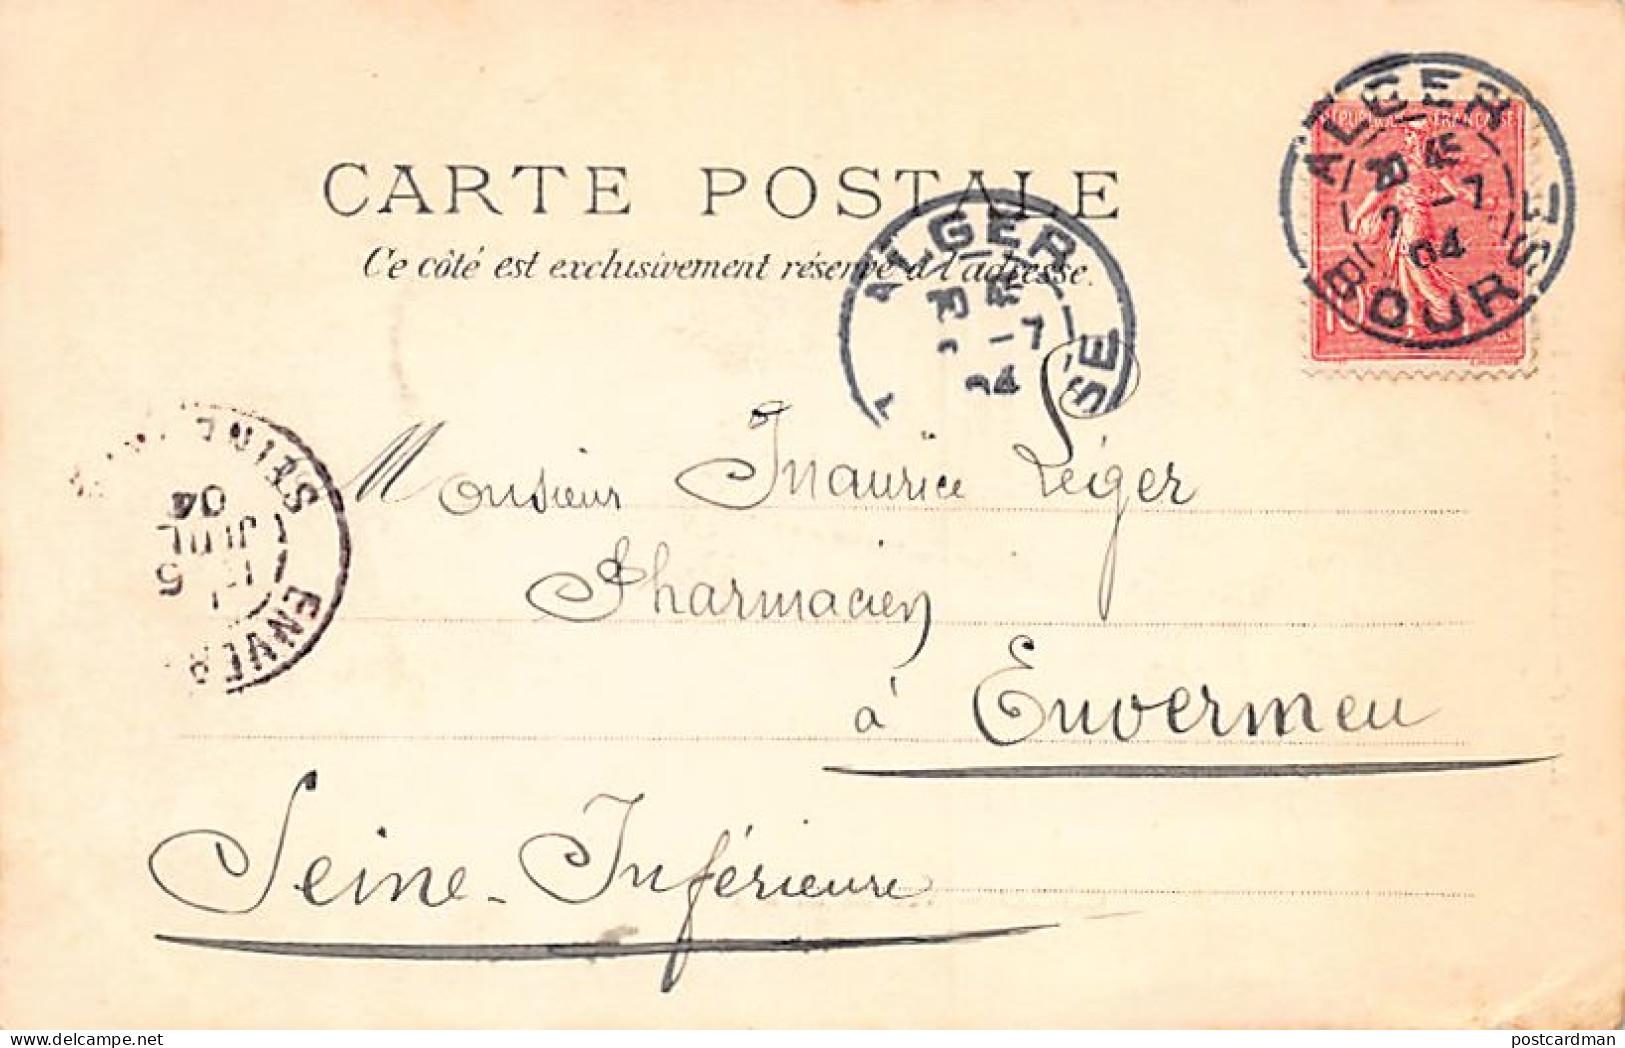 CARTE POSTALE
Ce côté est exclusivement réservé à l'adresse.
RÉPUBLIQUE FRANÇAISE
10
ALGER
2 -7
04
BOURSE
ALGER
-7
04
SE
SEINE
04
JUIL
5
ENVER
Monsieur Maurice Léger
Pharmacien
à Envermeu
Seine-Inférieure
postcardman